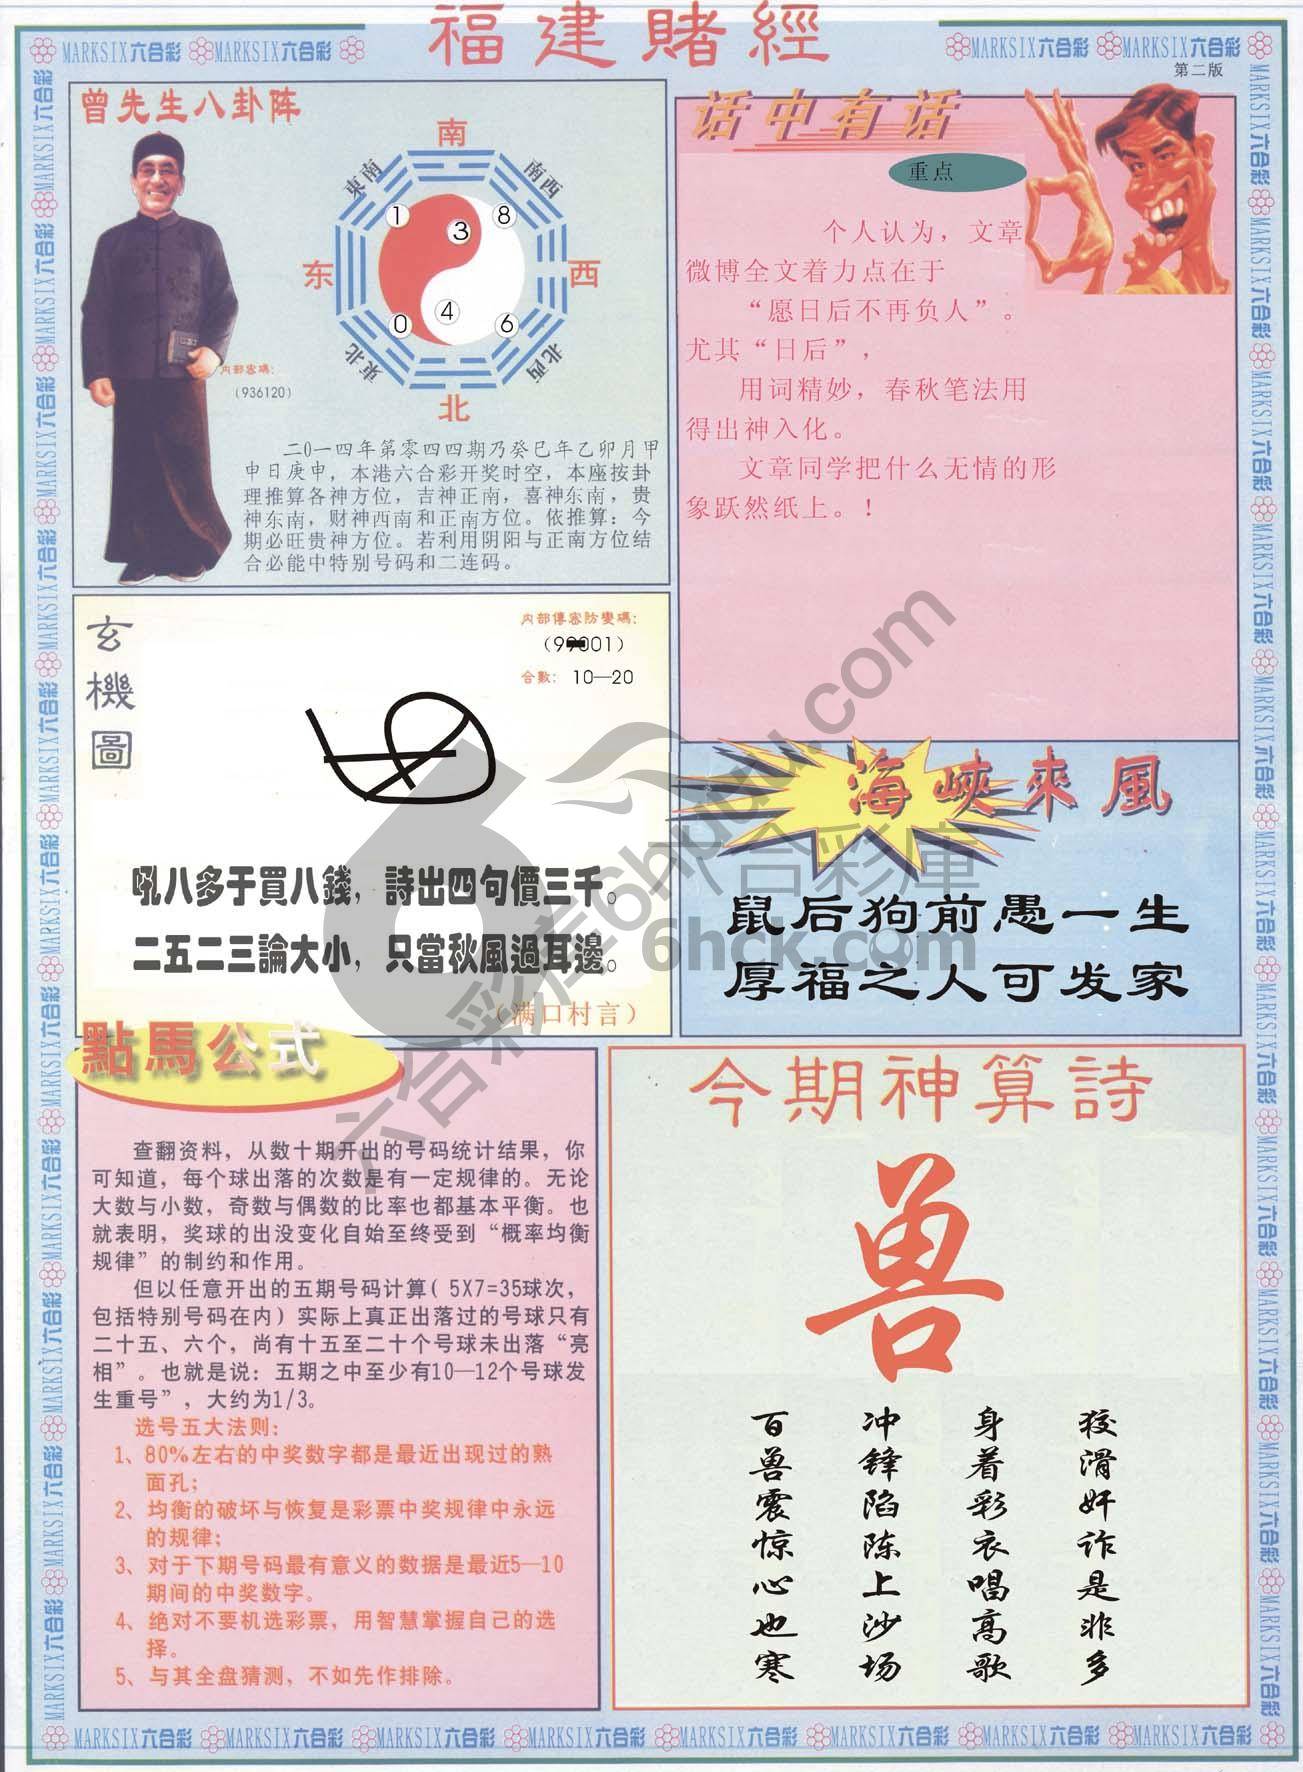 福建賭經
MARKSIX六合彩 MARKSIX六合彩
MARKSIX六合彩 MARKSIX六合彩
第二版
曾先生八卦阵
南
東南
南西
1
8
3
东
西
4
0
6
東北
北西
北
内部密碼:
(936120)
二0一四年第零四四期乃癸巳年乙卯月甲
申日庚申，本港六合彩开奖时空，本座按卦
理推算各神方位，吉神正南，喜神东南，贵
神东南，财神西南和正南方位。依推算：今
期必旺贵神方位。若利用阴阳与正南方位结
合必能中特别号码和二连码。
话中有话
重点
个人认为，文章
微博全文着力点在于
“愿日后不再负人”。
尤其“日后”，
用词精妙，春秋笔法用
得出神入化。
文章同学把什么无情的形
象跃然纸上。！
玄機圖
内部傳密防變碼:
合數: 10—20
吼八多于買八錢，詩出四句價三千。
二五二三論大小，只當秋風過耳邊。
（满口村言）
海峽來風
鼠后狗前愚一生
厚福之人可发家
點馬公式
查翻资料，从数十期开出的号码统计结果，你
可知道，每个球出落的次数是有一定规律的。无论
大数与小数，奇数与偶数的比率也都基本平衡。也
就表明，奖球的出没变化自始至终受到“概率均衡
规律”的制约和作用。
但以任意开出的五期号码计算（5X7=35球次，
包括特别号码在内）实际上真正出落过的号球只有
二十五、六个，尚有十五至二十个号球未出落“亮
相”。也就是说：五期之中至少有10—12个号球发
生重号”，大约为1/3。
选号五大法则:
1、80%左右的中奖数字都是最近出现过的熟
面孔;
2、均衡的破坏与恢复是彩票中奖规律中永远
的规律;
3、对于下期号码最有意义的数据是最近5—10
期间的中奖数字。
4、绝对不要机选彩票，用智慧掌握自己的选
择。
5、与其全盘猜测，不如先作排除。
今期神算詩
兽
狡滑奸诈是非多
身着彩衣唱高歌
冲锋陷陈上沙场
百兽震惊心也寒
六合彩库6hpudu.com
六合彩庫
6hck.com
MARKSIX六合彩 MARKSIX六合彩 MARKSIX六合彩 MARKSIX六合彩 MARKSIX六合彩 MARKSIX六合彩 MARKSIX六合彩 MARKSIX六合彩